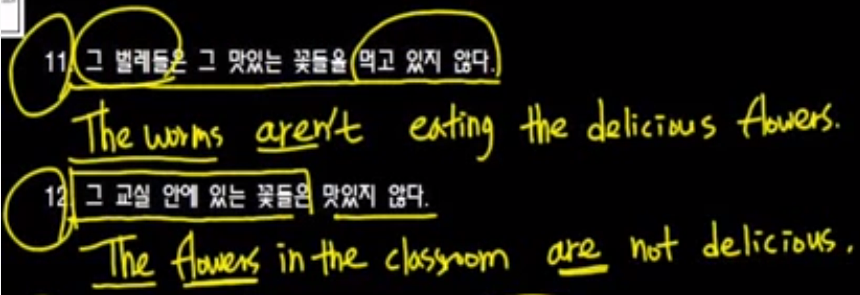 11. 그 벌레들은 그 맛있는 꽃들을 먹고 있지 않다.
The worms aren't eating the delicious flowers.
12. 그 교실 안에 있는 꽃들은 맛있지 않다.
The flowers in the classroom are not delicious.